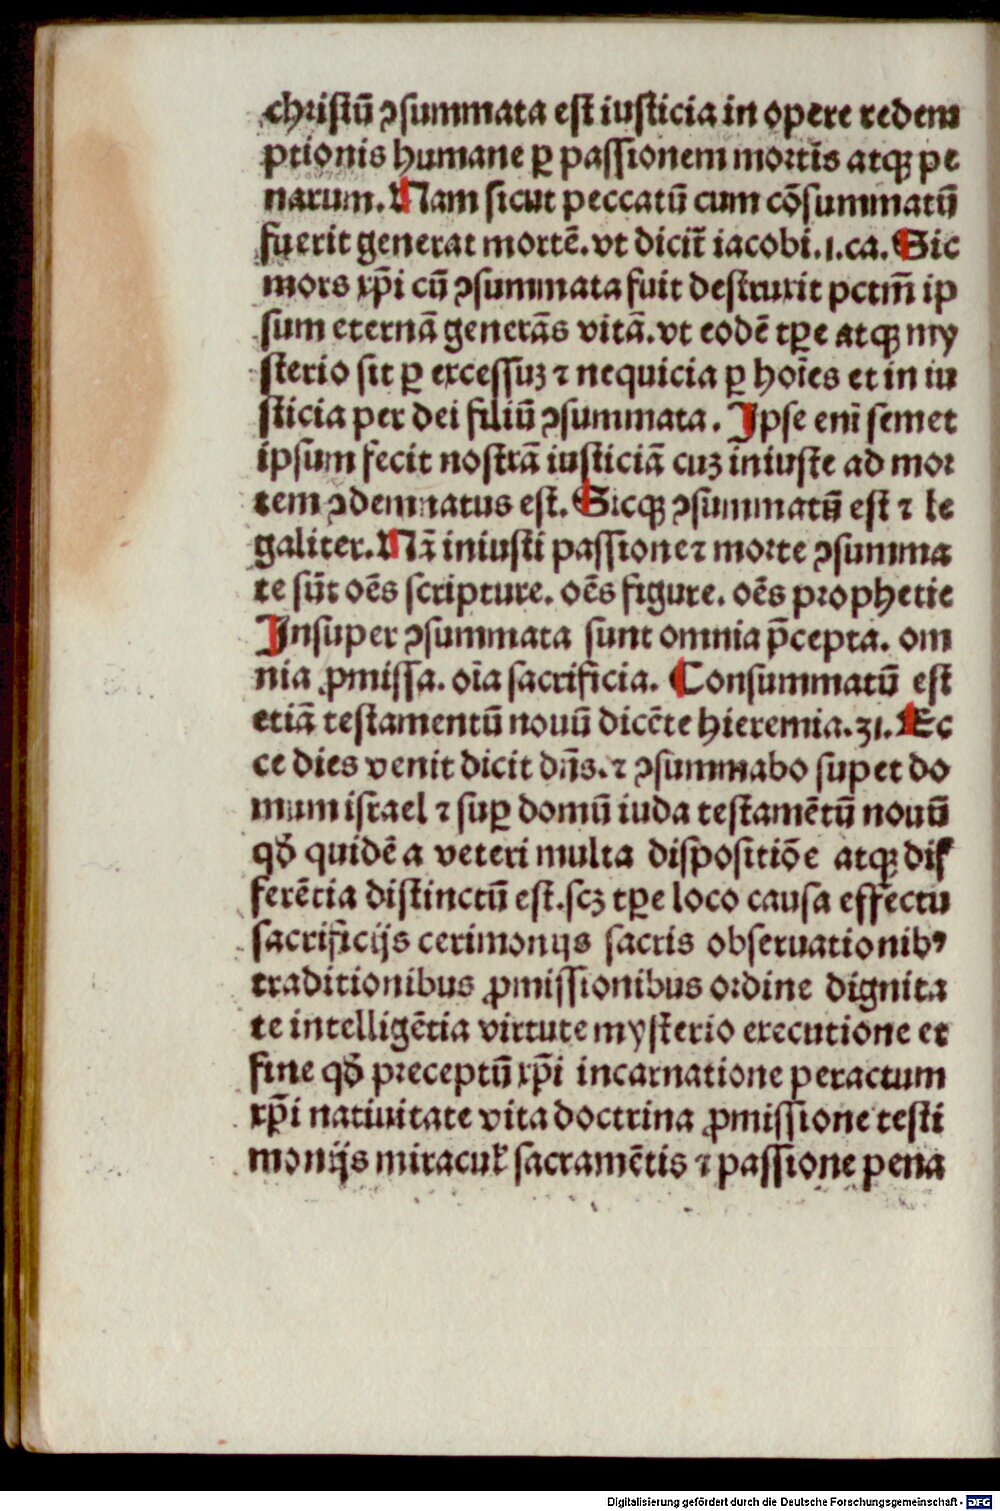 christū ꝯsummata est iusticia in opere redem
ptionis humane ꝑ passionem mortis atqꝫ pe
narum. Nam sicut peccatū cum cōsummatū
fuerit generat mortē. vt dicit̄ iacobi.1.ca. Sic
mors xp̄i cū ꝯsummata fuit destruxit pctm̄ ip
sum eternā generās vitā. vt eodē tꝑe atqꝫ my
sterio sit ꝑ excessuꝫ ⁊ nequicia ꝑ hoīes et in iu
sticia per dei filiū ꝯsummata. Ipse enī semet
ipsum fecit nostrā iusticiā cuꝫ iniuste ad mor
tem ꝯdemnatus est. Sicqꝫ ꝯsummatū est ⁊ le
galiter. Nā iniusti passione⁊ morte ꝯsumma
te sūt oēs scripture. oēs figure. oēs prophetie
Insuper ꝯsummata sunt omnia p̄cepta. om
nia ꝓmissa. oīa sacrificia. Consummatū est
etiā testamentū nouū dicēte hieremia.31. Ec
ce dies venit dicit dn̄s. ⁊ ꝯsummabo super do
mum israel ⁊ suꝑ domū iuda testamētū nouū
qđ quidē a veteri multa dispositiōe atqꝫ dif
ferētia distinctū est. scꝫ tꝑe loco causa effectu
sacrificijs cerimonijs sacris obseruationibꝰ
traditionibus ꝓmissionibus ordine dignita
te intelligētia virtute mysterio executione et
fine qđ preceptū xp̄i incarnatione peractum
xp̄i natiuitate vita doctrina ꝓmissione testi
monijs miracuł sacramētis ⁊ passione pena
Digitalisierung gefördert durch die Deutsche Forschungsgemeinschaft - DFG